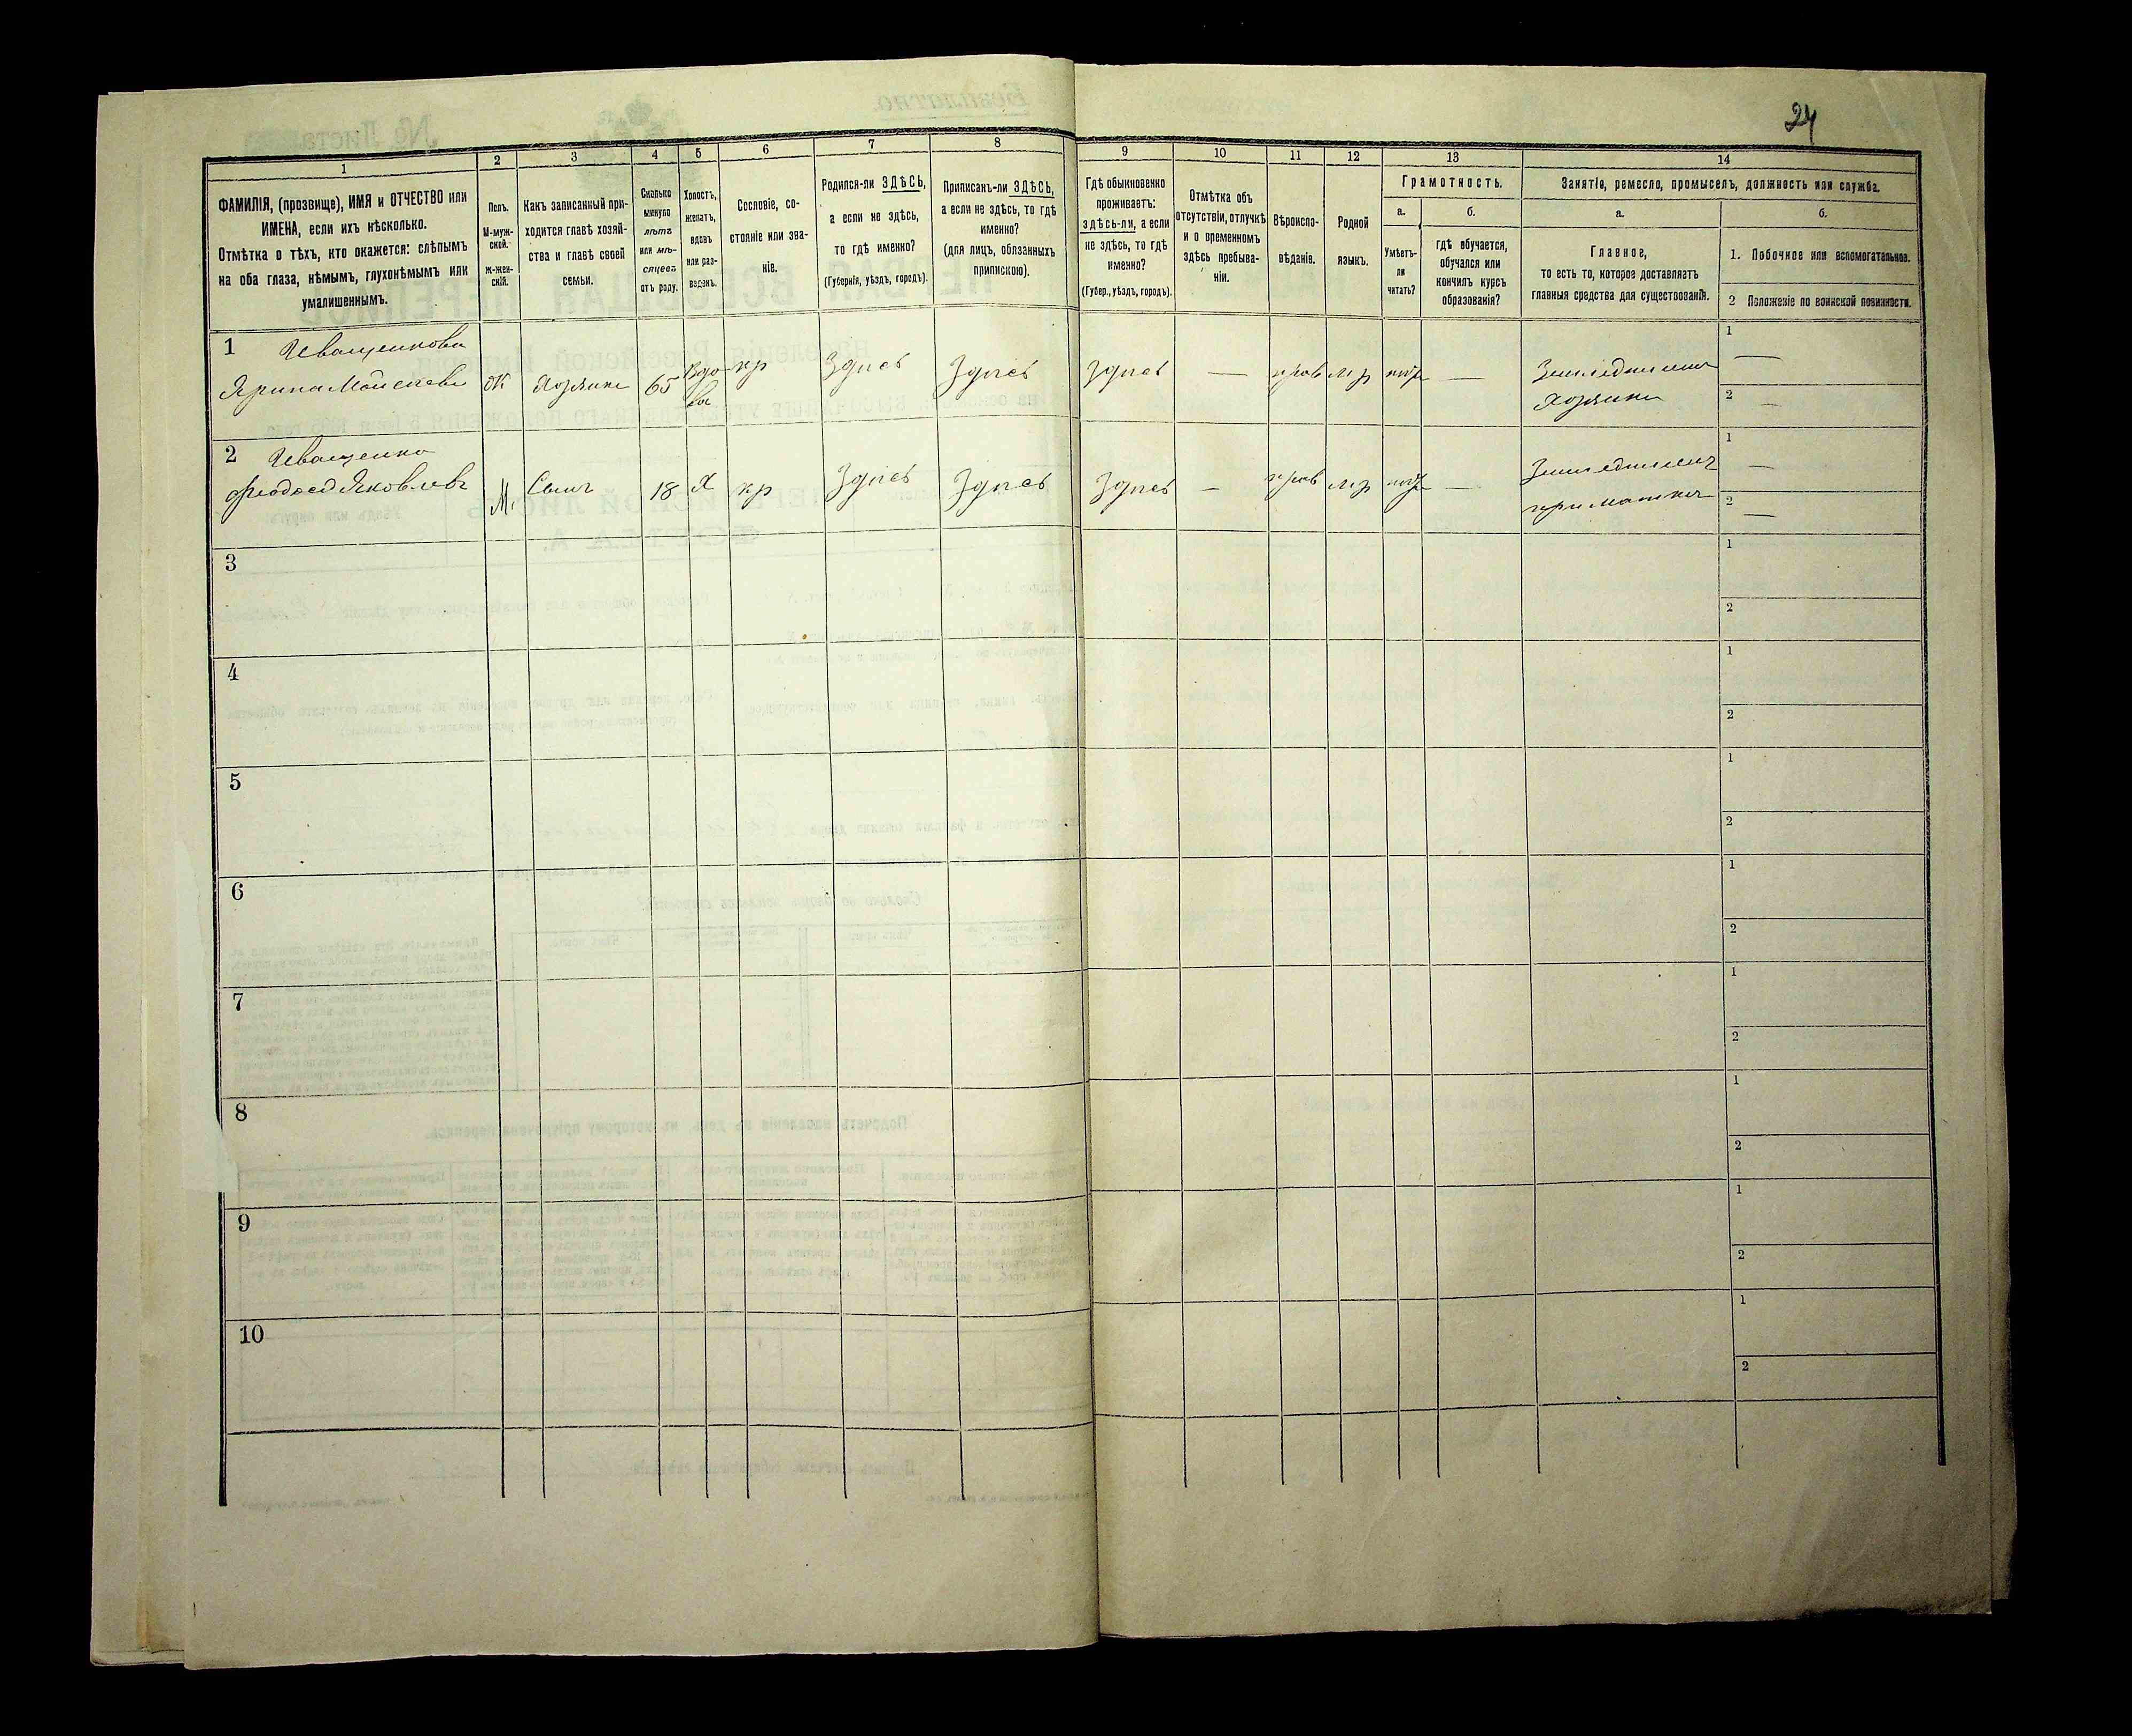 24
1
2
3
4
5
6
7
8
9
10
11
12
13
14
ФАМИЛІЯ, (прозвище), ИМЯ и ОТЧЕСТВО или
ИМЕНА, если ихъ нѣсколько.
Отмѣтка о тѣхъ, кто окажется: слѣпымъ
на оба глаза, нѣмымъ, глухонѣмымъ или
умалишеннымъ.
Полъ.
М-муж-
ской.
Ж-жен-
скій.
Какъ записанный при-
ходится главѣ хозяй-
ства и главѣ своей
семьи.
Сколько
минуло
лѣтъ
или мѣ-
сяцевъ
отъ роду.
Холостъ,
женатъ,
вдовъ
или раз-
веденъ.
Сословіе, со-
стояніе или зва-
ніе.
Родился-ли ЗДѢСЬ,
а если не здѣсь,
то гдѣ именно?
(Губернія, уѣздъ, городъ).
Приписанъ-ли ЗДѢСЬ,
а если не здѣсь, то гдѣ
именно?
(для лицъ, обязанныхъ
припискою).
Гдѣ обыкновенно
проживаетъ:
здѣсь-ли, а если
не здѣсь, то гдѣ
именно?
(Губер., уѣздъ, городъ).
Отмѣтка объ
отсутствіи, отлучкѣ
и о временномъ
здѣсь пребыва-
ніи.
Вѣроиспо-
вѣданіе.
Родной
языкъ.
Грамотность.
а.
Умѣетъ-
ли
читать?
б.
гдѣ обучается,
обучался или
кончилъ курсъ
образованія?
Занятіе, ремесло, промыселъ, должность или служба.
а.
Главное,
то есть то, которое доставляетъ
главныя средства для существованія.
б.
1. Побочное или вспомогательное.
2 Положеніе по воинской повинности.
1 Иващенкова
Ярина Моисеева Ж Хозяйка 65 Вдо-
ва кр Здѣсь Здѣсь Здѣсь — прав мр нѣтъ —
Земледѣлецъ
Хозяйка
1 —
2 —
2 Иващенко
Феодосѣ Яковлевъ М. Сынъ 18 Х кр Здѣсь Здѣсь Здѣсь — прав мр нѣтъ —
Земледѣлецъ
при маткѣ
1 —
2 —
3 1
2
4 1
2
5 1
2
6 1
2
7 1
2
8 1
2
9 1
2
10 1
2